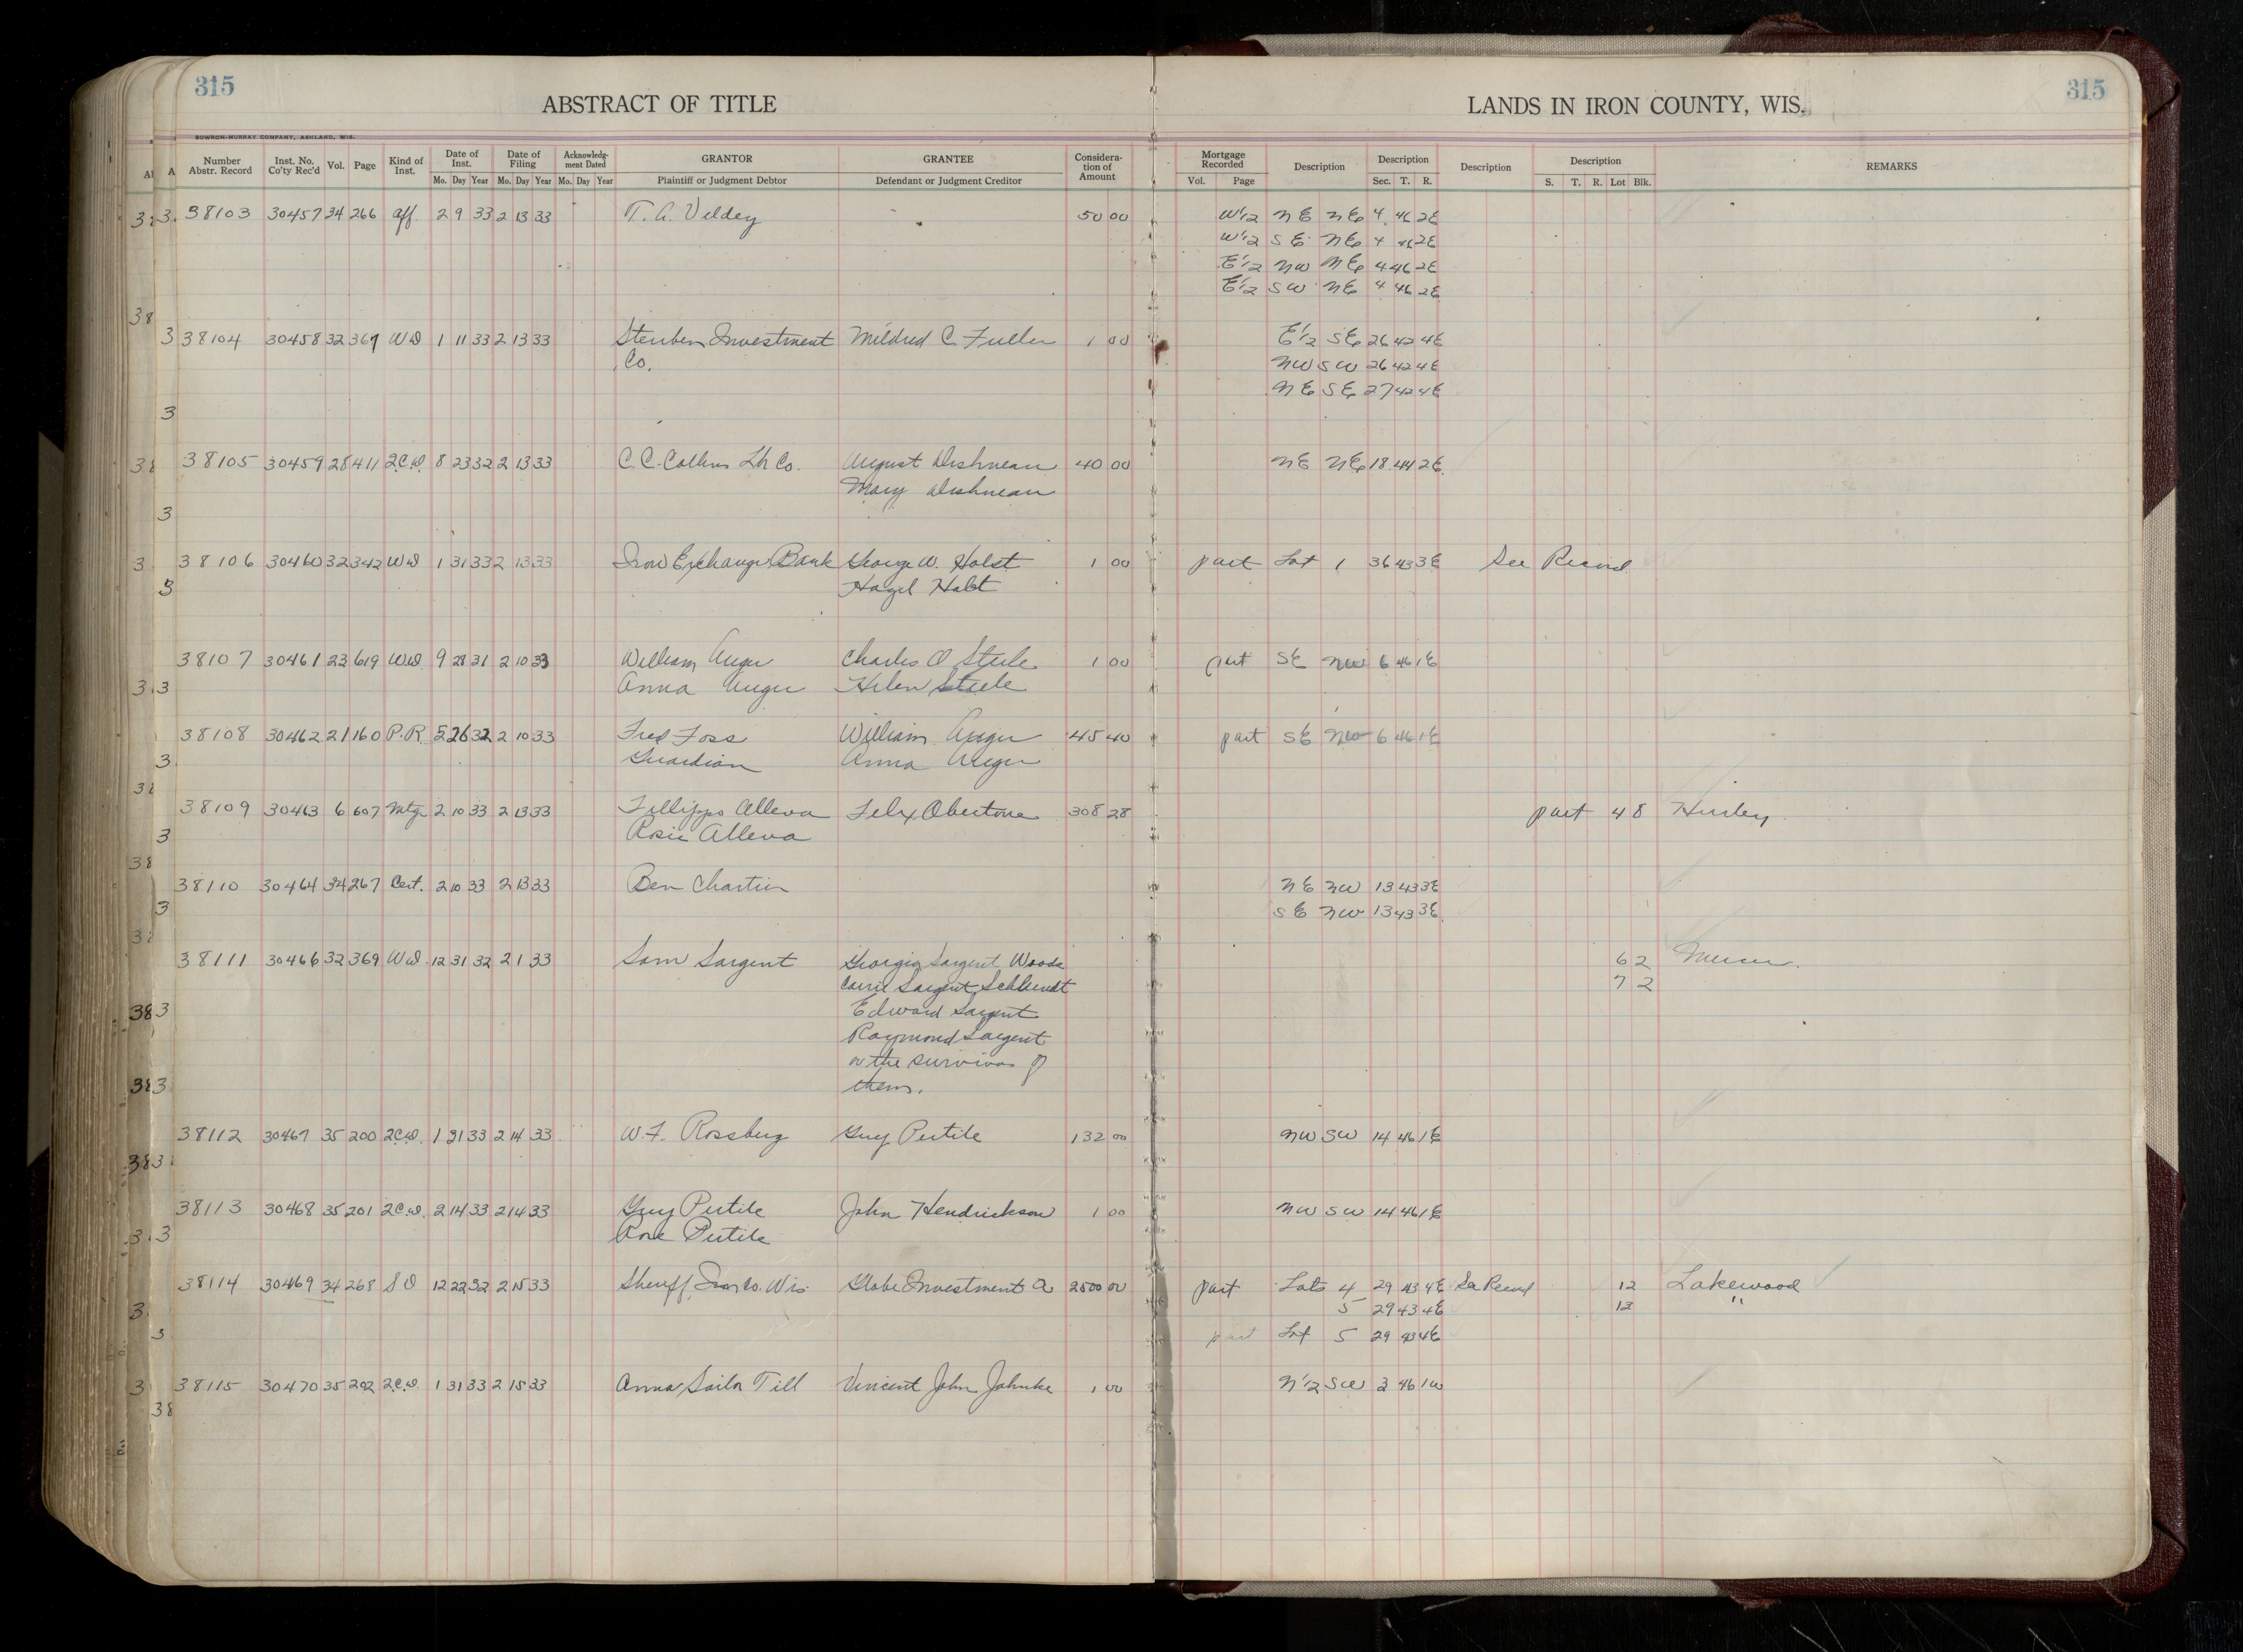 315
ABSTRACT OF TITLE
LANDS IN IRON COUNTY, WIS.
315
BOWRON-MURRAY COMPANY, ASHLAND, WIS.
Number Abstr. Record Inst. No. Co'ty Rec'd Vol. Page Kind of Inst. Date of Inst. Mo. Day Year Date of Filing Mo. Day Year Acknowledg-ment Dated Mo. Day Year GRANTOR Plaintiff or Judgment Debtor GRANTEE Defendant or Judgment Creditor Considera-tion of Amount Mortgage Recorded Vol. Page Description Description Sec. T. R. Description Description S. T. R. Lot Blk. REMARKS
38103 30457 34 266 Aff. 2 9 33 2 13 33 T. A. Veldey 50 00 W1/2 NE NE 4 46 2E
W1/2 SE NE 4 46 2E
E1/2 NW NE 4 46 2E
E1/2 SW NE 4 46 2E
38104 30458 32 367 WD 1 11 33 2 13 33 Steuben Investment Mildred C. Fuller 1 00 E1/2 SE 26 42 4E
Co. NW SW 26 42 4E
NE SE 27 42 4E
38105 30459 28 411 2CD. 8 23 32 2 13 33 C. C. Collins Lbr Co. August Dishneau 40 00 NE NE 18 44 2E
Mary Dishneau
38106 30460 32 342 WD 1 31 33 2 13 33 Iron Exchange Bank George W. Holst 1 00 part Lot 1 36 43 3E See Record
Hazel Holst
38107 30461 23 619 WD 9 28 31 2 10 33 William Auger Charles O Steele 1 00 part SE NW 6 46 1E
Anna Auger Helen Steele
38108 30462 21 160 P.R. 5 26 32 2 10 33 Fred Foss William Auger 45 40 part SE NW 6 46 1E
Guardian Anna Auger
38109 30463 6 607 Mtg 2 10 33 2 13 33 Fillippo Alleva Felix Obertone 308 28 part 4 8 Hurley.
Rosie Alleva
38110 30464 34 267 Cert. 2 10 33 2 13 33 Ben Chartier NE NW 13 43 3E
SE NW 13 43 3E
38111 30466 32 369 WD 12 31 32 2 1 33 Sam Sargent Georgia Sargent Woods 6 2 Mercer.
Carrie Sargent Schlundt 7 2
Edward Sargent
Raymond Sargent
or the survivor of
them.
38112 30467 35 200 2CD. 1 31 33 2 14 33 W. F. Rossberg Guy Pertile 132 00 NW SW 14 46 1E
38113 30468 35 201 2CD. 2 14 33 2 14 33 Guy Pertile John Hendrickson 1 00 NW SW 14 46 1E
Rose Pertile
38114 30469 34 268 SD 12 22 32 2 15 33 Sheriff Iron Co. Wis. Globe Investment Co 2500 00 part Lots 4 29 43 4E See Record 12 Lakewood
5 29 43 4E 13 "
part Lot 5 29 43 4E
38115 30470 35 202 2CD. 1 31 33 2 15 33 Anna Sailor Till Vincent John Jahnke 1 00 N1/2 SW 3 46 1W